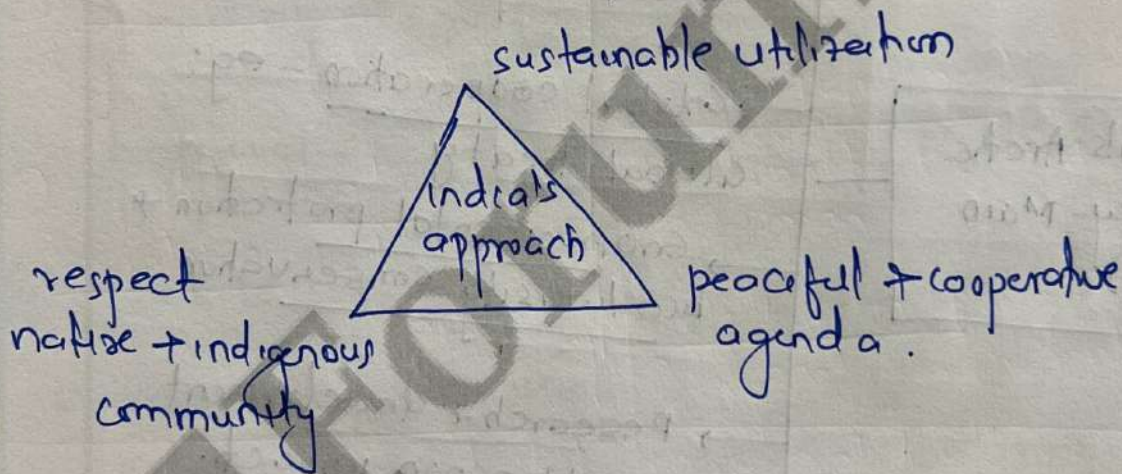 sustainable utilization
india's
approach
respect
native + indigenous
community
peaceful + cooperative
agenda.
Forum